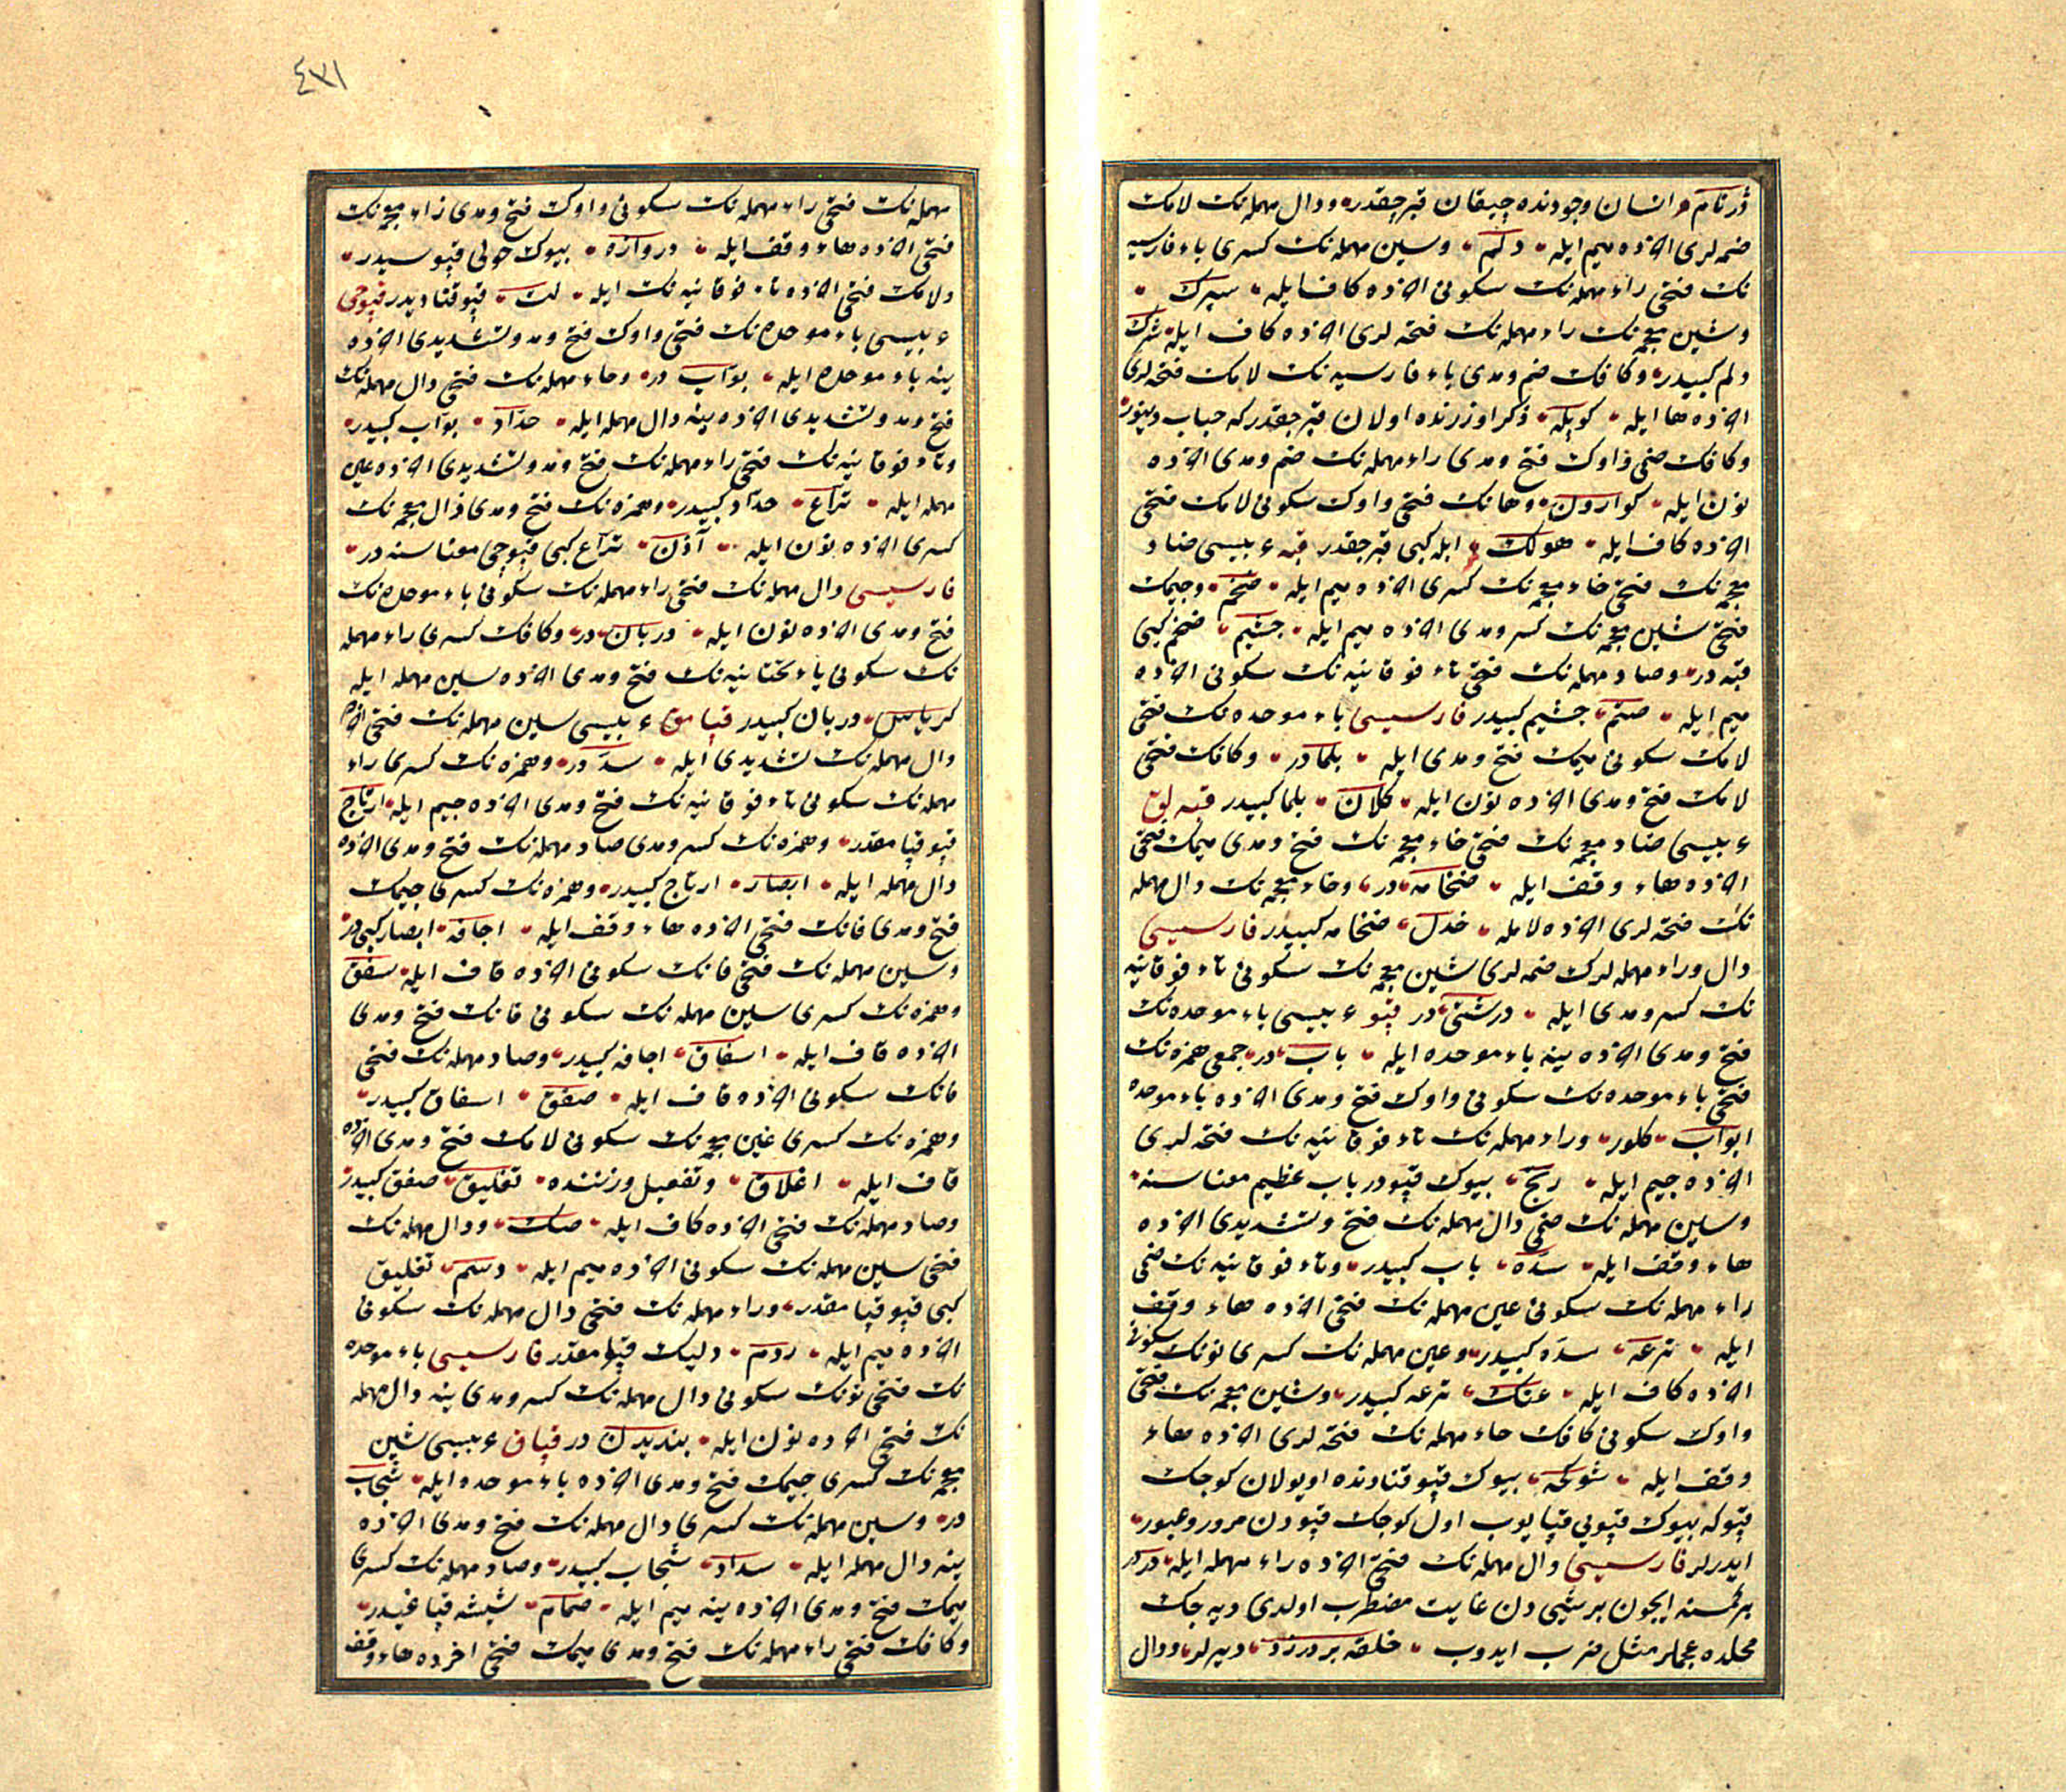 ژرتام انسان وجودنده چیقان قبرجقدر ودال مهمله نك لامك
ضمه لری اخرده میم ایله دلم وسین مهمله نك كسری باء فارسیه
نك فتحی راء مهمله نك سكونی اخرده كاف ایله سپرك
وشین معجمه نك راء مهمله نك فتحه لری اخرده كاف ایله شرك
دلم كبیدر وكافك ضم ومدی باء فارسیه نك لامك فتحه لری
اخرده ها ایله كوپله ذكر اوزرنده اولان قبرجقدر كه حباب دینور
وكافك ضمی واوك فتح ومدی راء مهمله نك ضم ومدی اخرده
نون ایله كوارون وهانك فتحی واوك سكونی لامك فتحی
اخرده كاف ایله هولك ابله كبی قبرجقدر قبه ء بیسی ضاد
معجمه نك فتحی خاء معجمه نك كسری اخرده میم ایله ضخم وجیمك
فتحی شین معجمه نك كسر ومدی اخرده میم ایله جشیم ضخم كبی
قبه در وصاد مهمله نك فتحی تاء فوقانیه نك سكونی اخرده
میم ایله صتم جشیم كبیدر فارسیسی باء موحده نك فتحی
لامك سكونی میمك فتح ومدی ایله بلمادر وكافك فتحی
لامك فتح ومدی اخرده نون ایله كلان بلما كبیدر قبه لق
ء بیسی ضاد معجمه نك فتحی خاء معجمه نك فتح ومدی میمك فتحی
اخرده هاء وقف ایله ضخامه در وخاء معجمه نك دال مهمله
نك فتحه لری اخرده لامله خدل ضخامه كبیدر فارسیسی
دال وراء مهمله لرك ضمه لری شین معجمه نك سكونی تاء فوقانیه
نك كسر ومدی ایله درشتی در قپو ء بیسی باء موحده نك
فتح ومدی اخرده ینه باء موحده ایله باب در جمعی همزه نك
فتحی باء موحده نك سكونی واوك فتح ومدی اخرده باء موحده
ابواب كلور وراء مهمله نك تاء فوقانیه نك فتحه لری
اخرده جیم ایله رتج بیوك قپودر باب عظیم معناسنه
وسین مهمله نك ضمی دال مهمله نك فتح وتشدیدی اخرده
هاء وقف ایله سده باب كبیدر وتاء فوقانیه نك ضمی
راء مهمله نك سكونی عین مهمله نك فتحی اخرده هاء وقف
ایله ترعه سده كبیدر وعین مهمله نك كسری نونك سكونی
اخرده كاف ایله عنك ترعه كبیدر وشین معجمه نك فتحی
واوك سكونی كافك حاء مهمله نك فتحه لری اخرده هاء
وقف ایله شوكحه بیوك قپو قنادنده اویولان كوجك
قپو كه بیوك قپویی قپایوب اول كوجك قپودن مرور وعبور
ایدرلر فارسیسی دال مهمله نك فتحی اخرده راء مهمله ایله در در
بر كمسنه ایچون بر شیی دن غایت مضطرب اولدی دیه جك
محلده عجملر مثل ضرب ایدوب حلقه بر در زد دیرلر ودال
٤٣١
مهمله نك فتحی راء مهمله نك سكونی واوك فتح ومدی زاء معجمه نك
فتحی اخرده هاء وقف ایله دروازه بیوك حولی قپوسیدر
ولامك فتحی اخرده تاء فوقانیه نك ایله لت قپو قنادیدر قپوجی
ء بیسی باء موحده نك فتحی واوك فتح ومد وتشدیدی اخرده
ینه باء موحده ایله بواب در وحاء مهمله نك فتحی دال مهمله نك
فتح ومد وتشدیدی اخرده ینه دال مهمله ایله حداد بواب كبیدر
وتاء فوقانیه نك فتحی راء مهمله نك فتح ومد وتشدیدی اخرده عین
مهمله ایله تراع حداد كبیدر وهمزه نك فتح ومدی ذال معجمه نك
كسری اخرده نون ایله آذن تراع كبی قپوجی معناسنه در
فارسیسی دال مهمله نك فتحی راء مهمله نك سكونی باء موحده نك
فتح ومدی اخرده نون ایله دربان در وكافك كسری راء مهمله
نك سكونی یاء تحتانیه نك فتح ومدی اخرده سین مهمله ایله
كریاس دربان كبیدر قپامق ء بیسی سین مهمله نك فتحی اخرده
دال مهمله نك تشدیدی ایله سد در وهمزه نك كسری راء
مهمله نك سكونی تاء فوقانیه نك فتح ومدی اخرده جیم ایله ارتاج
قپو قپامقدر وهمزه نك كسر ومدی صاد مهمله نك فتح ومدی اخرده
دال مهمله ایله ایصاد ارتاج كبیدر وهمزه نك كسری جیمك
فتح ومدی فانك فتحی اخرده هاء وقف ایله اجافه ایصاد كبی در
وسین مهمله نك فتحی فانك سكونی اخرده قاف ایله سفق
وهمزه نك كسری سین مهمله نك سكونی فانك فتح ومدی
اخرده قاف ایله اسفاق اجافه كبیدر وصاد مهمله نك فتحی
فانك سكونی اخرده قاف ایله صفق اسفاق كبیدر
وهمزه نك كسری غین معجمه نك سكونی لامك فتح ومدی اخرده
قاف ایله اغلاق وتفعیل وزننده تغلیق صفق كبیدر
وصاد مهمله نك فتحی اخرده كاف ایله صك ودال مهمله نك
فتحی سین مهمله نك سكونی اخرده میم ایله دسم تغلیق
كبی قپو قپامقدر وراء مهمله نك فتحی دال مهمله نك سكونی
اخرده میم ایله ردم دلیك قپامقدر فارسیسی باء موحده
نك فتحی نونك سكونی دال مهمله نك كسر ومدی ینه دال مهمله
نك فتحی اخرده نون ایله بندیدن در قپاق ء بیسی شین
معجمه نك كسری جیمك فتح ومدی اخرده باء موحده ایله شجاب
در وسین مهمله نك كسری دال مهمله نك فتح ومدی اخرده
ینه دال مهمله ایله سداد شجاب كبیدر وصاد مهمله نك كسری
میمك فتح ومدی اخرده ینه میم ایله صمام شیشه قپاغیدر
وكافك فتحی راء مهمله نك فتح ومدی میمك فتحی اخرده هاء وقف